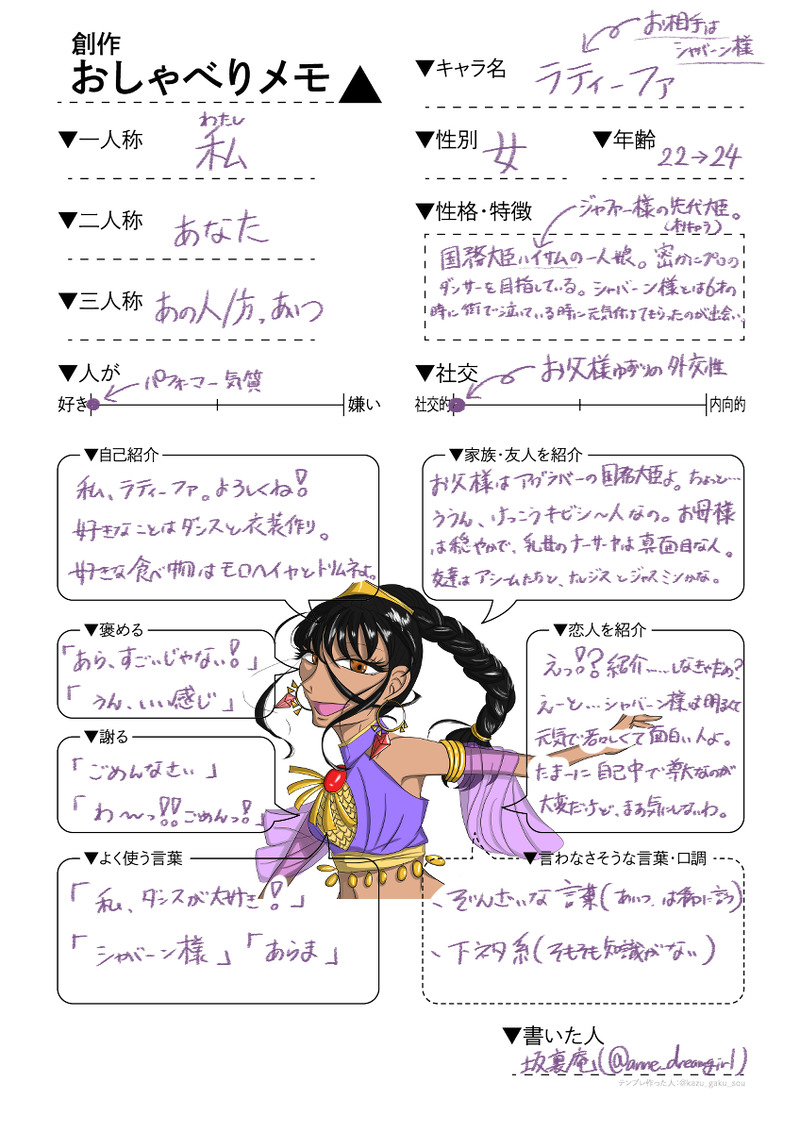 創作
おしゃべりメモ
▼キャラ名
ラティーファ
お相手は
シャバーン様
▼一人称
わたし
私
▼性別
女
▼年齢
22→24
▼二人称
あなた
▼性格・特徴
ジャファー様の先代大臣。
国務大臣ハイサムの一人娘。密かにプロの
ダンサーを目指している。シャバーン様とは6才の
時に街で泣いている時に元気付けてもらったのが出会い。
▼三人称
あの人/方、あいつ
▼人が
パフォーマー気質
好き
嫌い
▼社交
お父様ゆずりの外交性
社交的
内向的
▼自己紹介
私、ラティーファ。よろしくね!
好きなことはダンスと衣装作り。
好きな食べ物はモロヘイヤとドリムネよ。
▼家族・友人を紹介
お父様はアグラバーの国務大臣よ。ちょっと…
ううん、けっこうキビシ〜人なの。お母様
は穏やかで、乳母のナーサヤは真面目な人。
友達はアシームたちと、ナルジスとジャスミンかな。
▼褒める
「あら、すごいじゃない!」
「うん、いい感じ」
▼恋人を紹介
えっ!?紹介……しなきゃだめ?
えーと…シャバーン様は明るくて
元気で若々しくて面白い人よ。
たまーに自己中で尊大なのが
大変だけど、まあ気にしないわ。
▼謝る
「ごめんなさい」
「わ〜っ!!ごめんっ!」
▼よく使う言葉
「私、ダンスが大好き!」
「シャバーン様」「あらま」
▼言わなさそうな言葉・口調
、ぞんざいな言葉(あいつ、は稀に言う)
、下ネタ系(そもそも知識がない)
▼書いた人
坂裏庵(@anne_dreamgirl)
テンプレ作った人:@kazu_gaku_sou